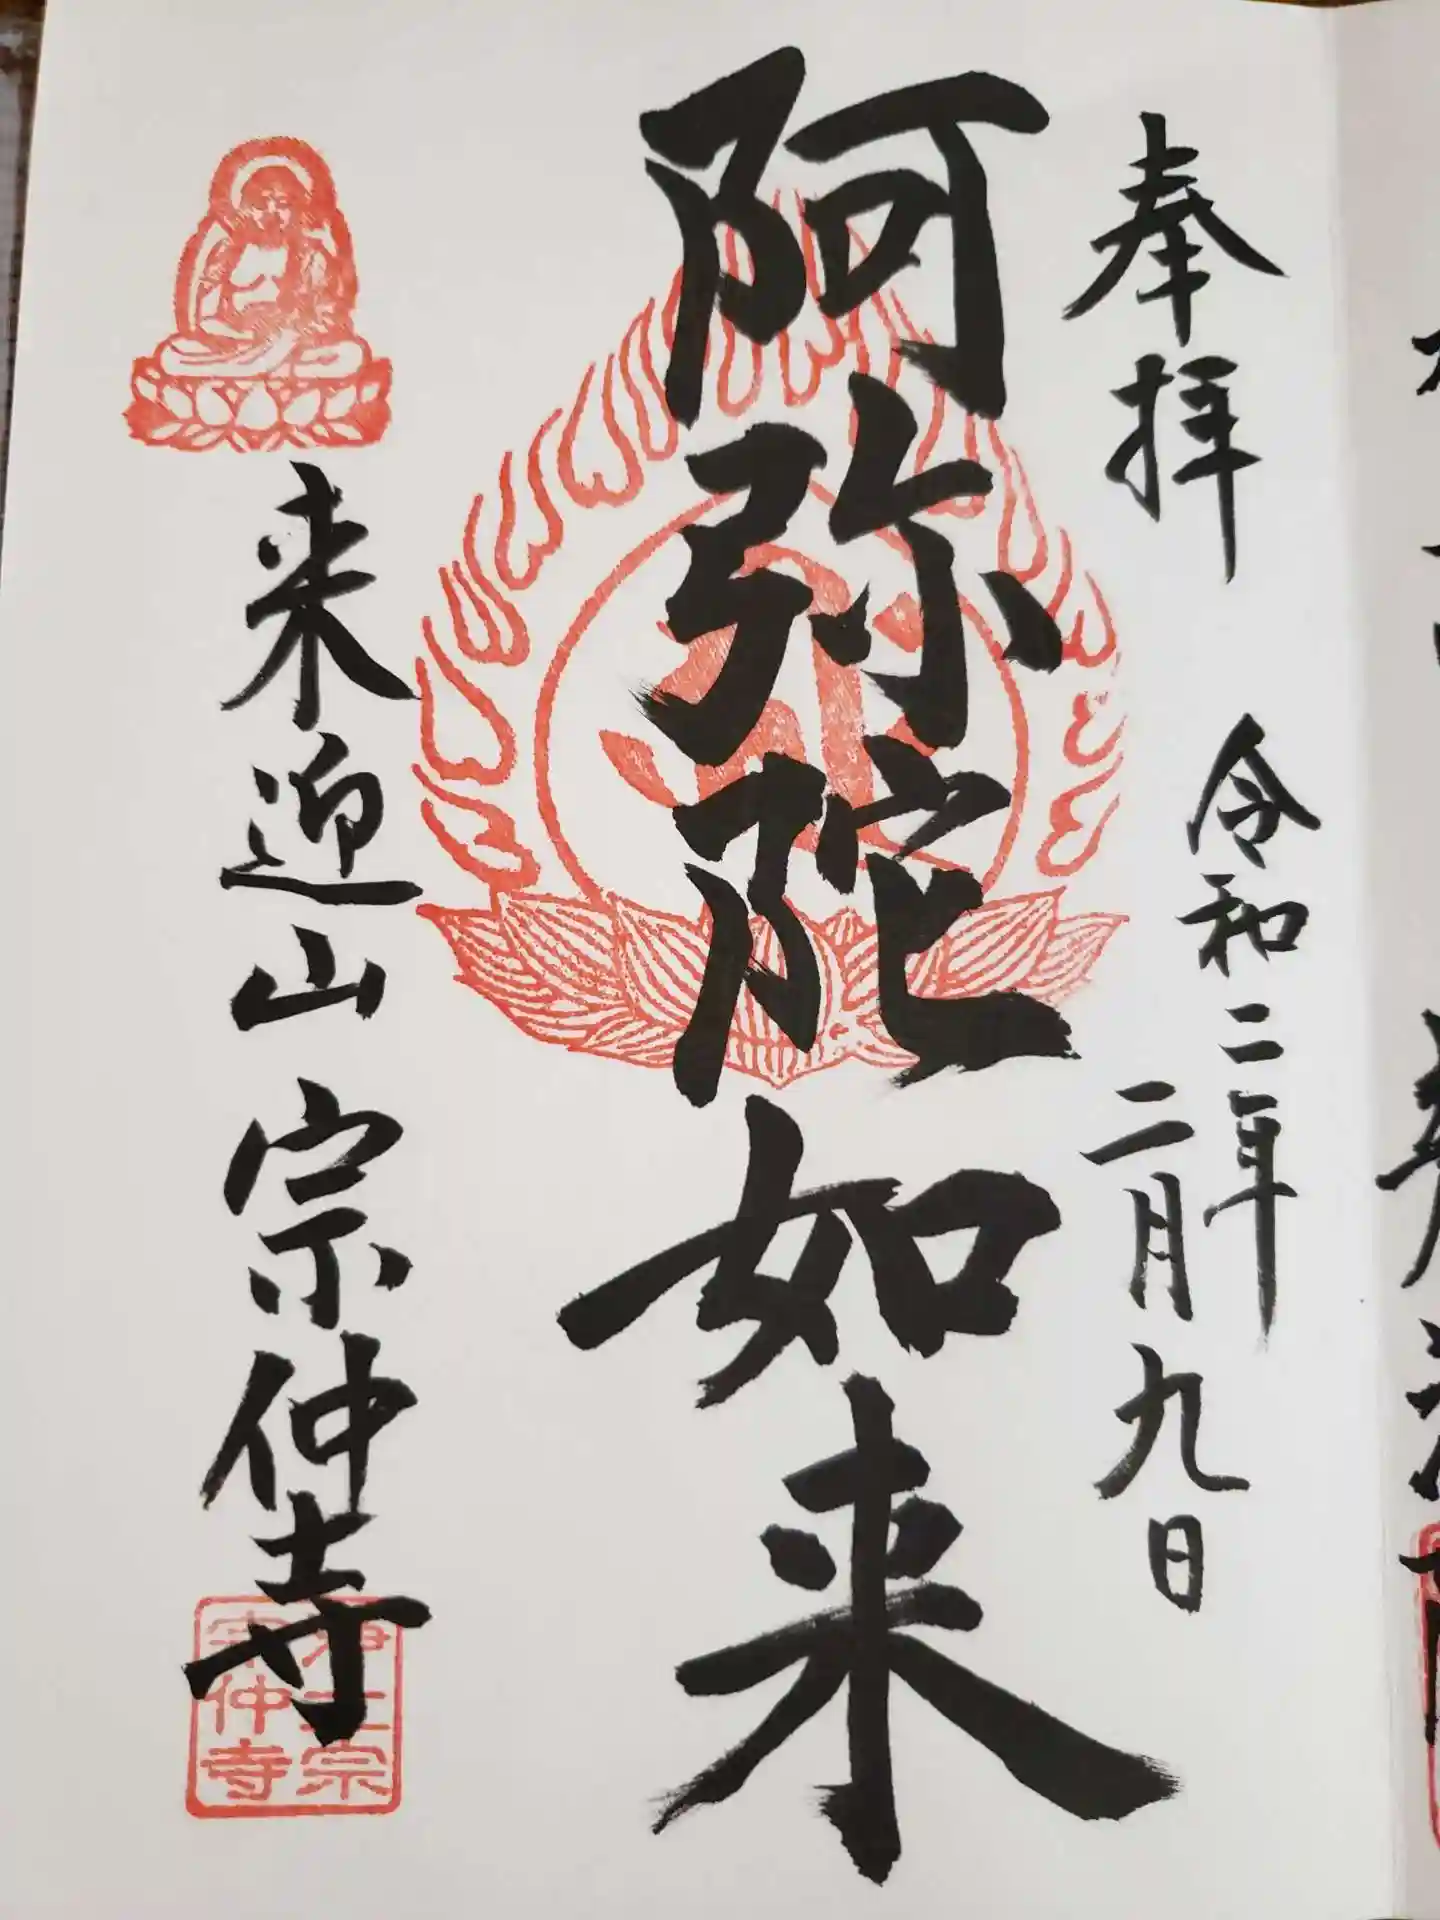 奉拝
令和二年
二月九日
阿弥陀如来
来迎山 宗仲寺
浄土宗
宗仲寺